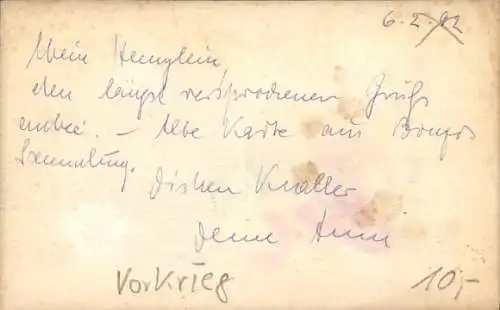 6. 2. 92
Mein Hennylein,
den längst versprochenen Gruß
anbei. – Alte Karte aus
Sammlung.
Dicken Knaller
Deine Anni
Vorkrieg
10,-